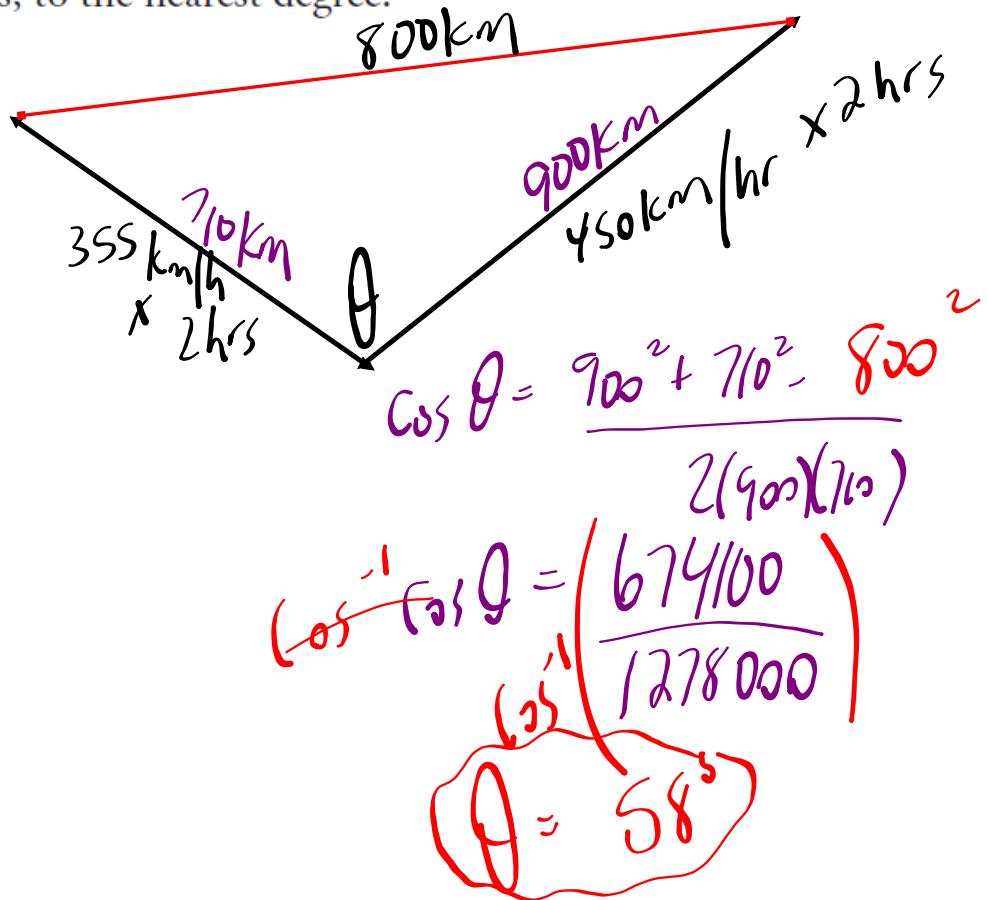 s, to the nearest degree.
800km
900km
x 2 hrs
450km/hr
710km
355 km/h
x 2hrs
θ
cos θ = 900² + 710² - 800²
2(900)(710)
cos⁻¹ cos θ = cos⁻¹ (674100
1278000)
θ = 58°